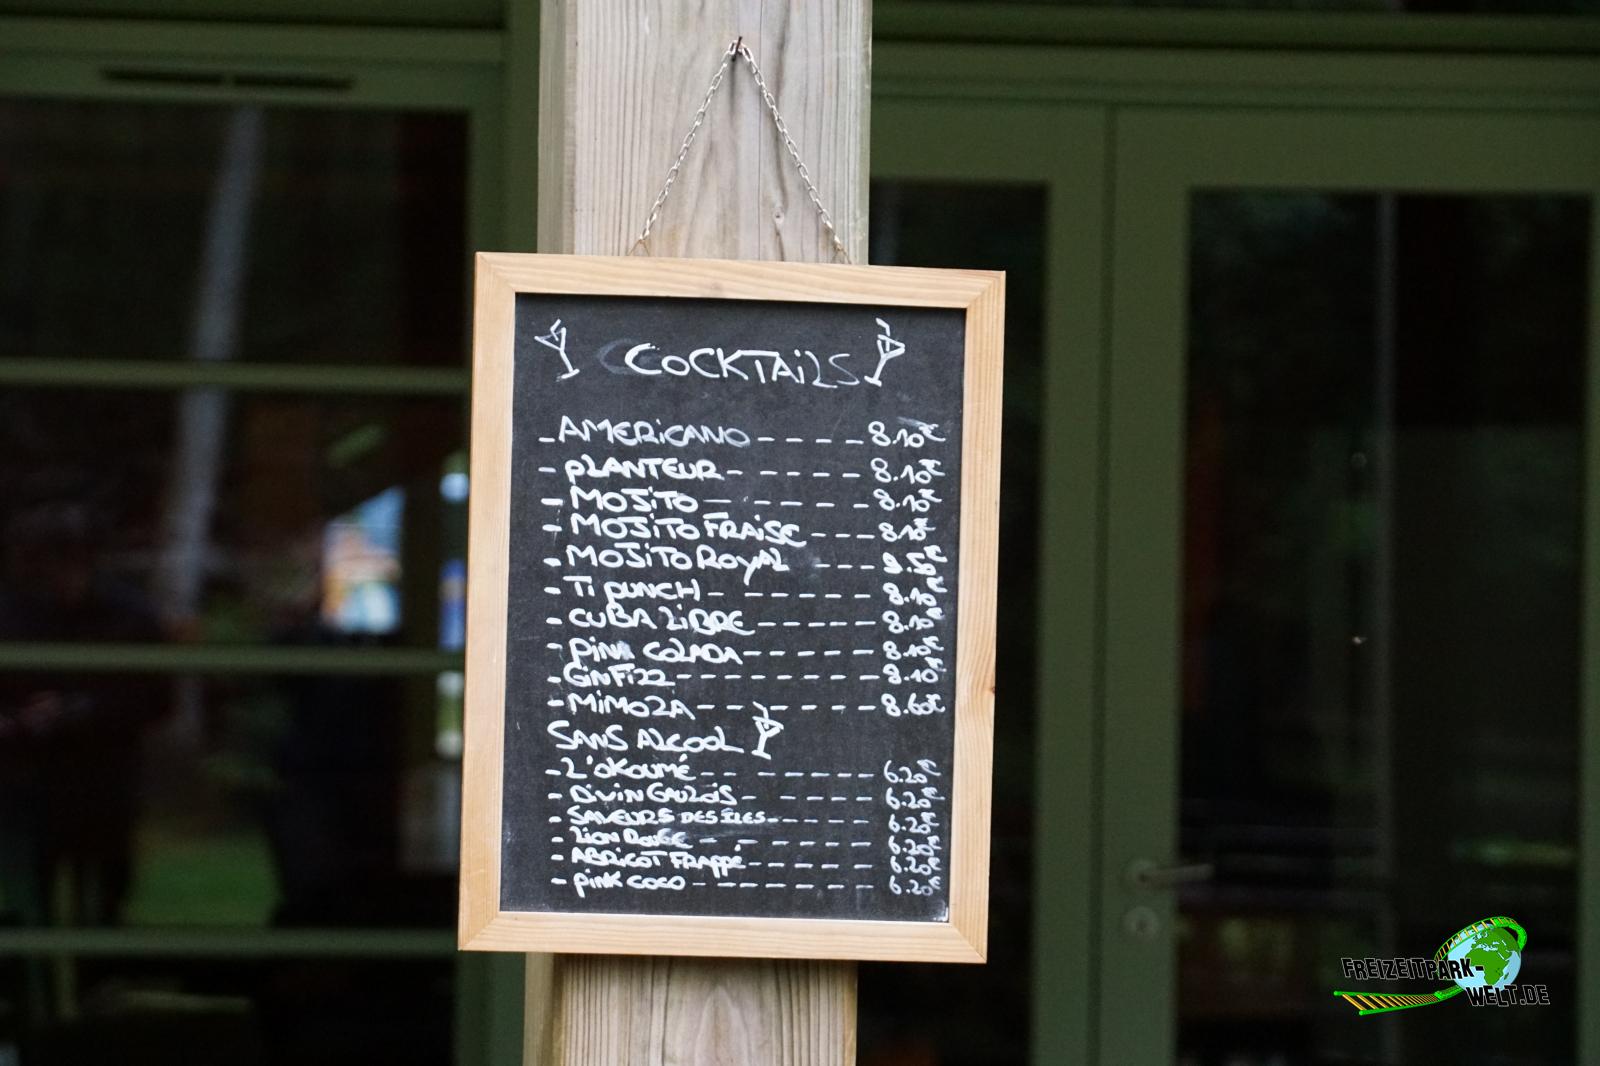 COCKTAiLS
- AMERiCANO - - - - - 8.10€
- PLANTEUR - - - - - - 8.10€
- MOJiTO - - - - - - 8.10€
- MOJiTO FRAiSE - - - 8.10€
- MOJiTO ROYAL - - - 8.50€
- Ti PUNCH - - - - - - 8.10€
- CUBA LiBRE - - - - - 8.10€
- PiNK COLADA - - - - - - 8.10€
- GiN Fizz - - - - - - - - - 8.10€
- MiMOZA - - - - - - - 8.60€
SANS ALCOOL
- L'OKOUMÉ - - - - - - - - 6.20€
- DiViN GAULOiS - - - - - - 6.20€
- SAVEURS DES ÎLES - - - - - 6.20€
- LiON ROUGE - - - - - - - 6.20€
- ABRiCOT FRAPPÉ - - - - - - 6.20€
- PiNK COCO - - - - - - - 6.20€
FREIZEITPARK-
WELT.DE